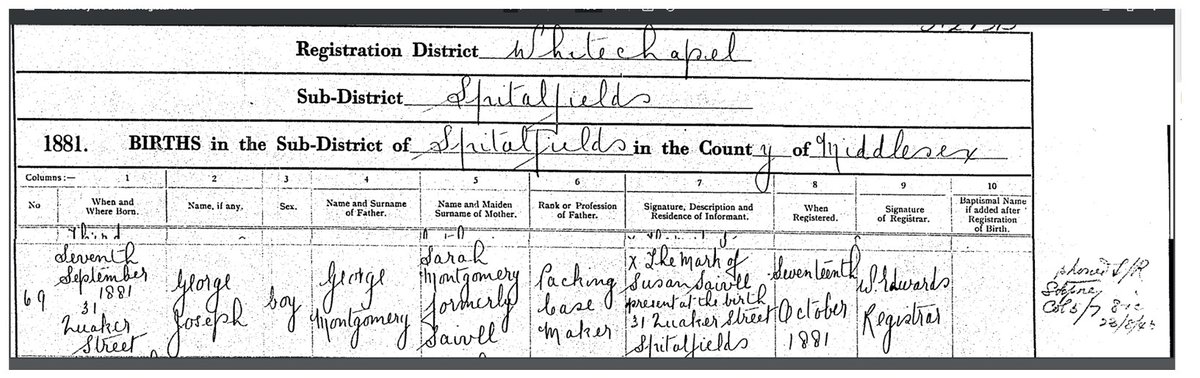 Registration District Whitechapel
Sub-District Spitalfields
1881. BIRTHS in the Sub-District of Spitalfields in the County of Middlesex
Columns:— 1 2 3 4 5 6 7 8 9 10
No When and Where Born. Name, if any. Sex. Name and Surname of Father. Name and Maiden Surname of Mother. Rank or Profession of Father. Signature, Description and Residence of Informant. When Registered. Signature of Registrar. Baptismal Name if added after Registration of Birth.
69
Seventh
September
1881
31
Quaker
Street
George
Joseph
boy
George
Montgomery
Sarah
Montgomery
formerly
Saivell
Packing
Case
Maker
X The Mark of
Susan Saivell
present at the birth
31 Quaker Street
Spitalfields
Seventeenth
October
1881
W Edwards
Registrar
phoned S/R
Stepney